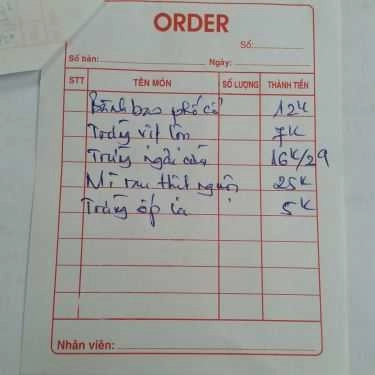 ORDER
Số:
Số bàn: Ngày:
STT TÊN MÓN SỐ LƯỢNG THÀNH TIỀN
Bánh bao phố cổ 12K
Trứng vịt lộn 7K
Trứng ngải cứu 16K/2q
Mì rau thịt nguội 25K
Trứng ốp la 5K
Nhân viên: